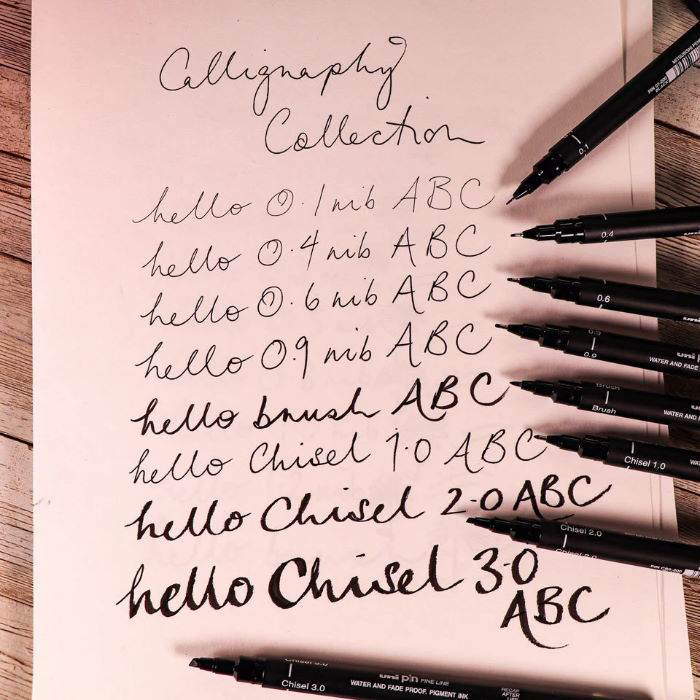 Calligraphy
Collection
hello 0.1 nib ABC
hello 0.4 nib ABC
hello 0.6 nib ABC
hello 0.9 nib ABC
hello brush ABC
hello Chisel 1.0 ABC
hello Chisel 2.0 ABC
hello Chisel 3.0
ABC
0.1
0.4
0.6
0.9
uni pin
WATER AND FADE
Brush
Brush
WATER AND F
Chisel 1.0
Chisel 2.0
Chisel 3.0
uni pin FINE LINE
WATER AND FADE PROOF, PIGMENT INK
RECAP
AFTER